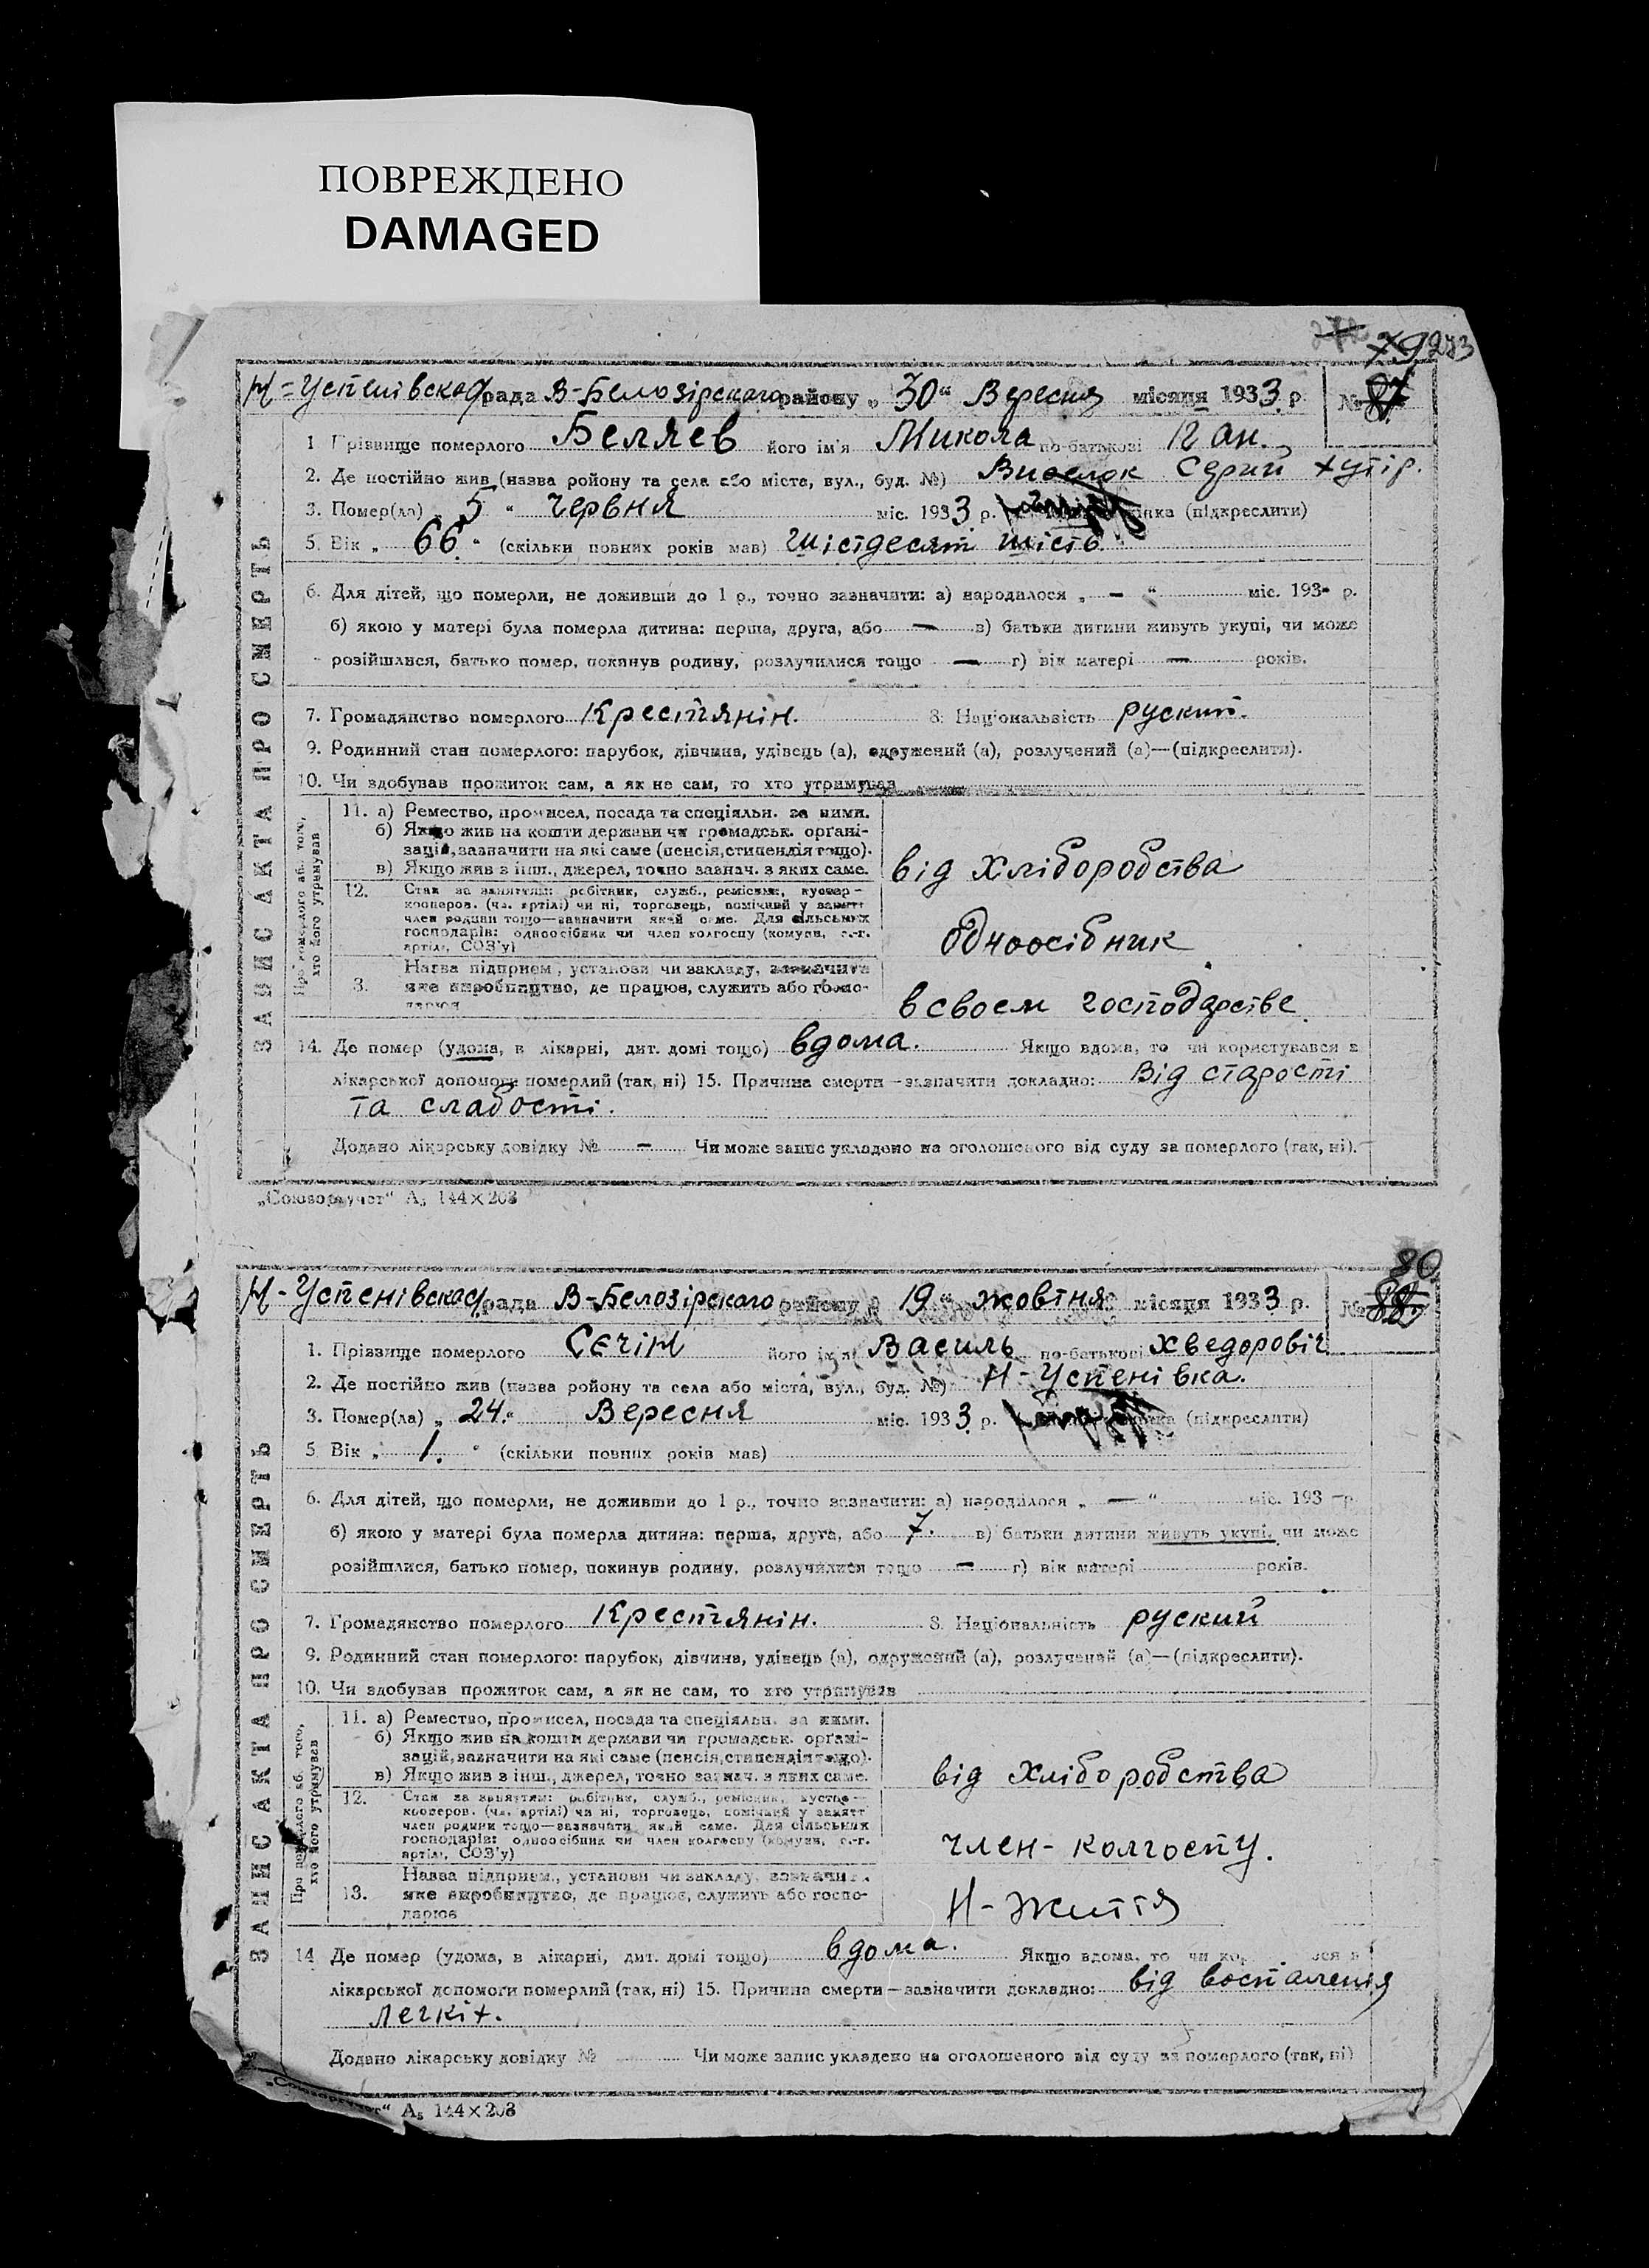 ПОВРЕЖДЕНО
DAMAGED
273
79
Н-Успенівская рада В-Белозірскаго району „30“ Вересня місяця 1933 р. № 87
1 Прізвище померлого Беляев його ім'я Микола по-батькові
2. Де постійно жив (назва району та села або міста, вул., буд. №) Виселок Серий хутір.
3. Помер(ла) „5“ червня міс. 1933 р. (підкреслити)
5. Вік „66“ (скільки повних років мав) шістдесят шість
6. Для дітей, що померли, не доживши до 1 р., точно зазначити: а) народилося „—“ міс. 193- р.
б) якою у матері була померла дитина: перша, друга, або — в) батьки дитини живуть укупі, чи може
розійшлися, батько помер, покинув родину, розлучилися тощо — г) вік матері — років.
7. Громадянство померлого Крестянін. 8. Національність руский.
9. Родинний стан померлого: парубок, дівчина, удівець (а), одружений (а), розлучений (а)—(підкреслити).
10. Чи здобував прожиток сам, а як не сам, то хто утримував
ЗАПИС АКТА ПРО СМЕРТЬ
Про померлого аб. того, хто його утримував
11. а) Ремество, промисел, посада та спеціяльн. за ними.
б) Якщо жив на кошти держави чи громадськ. органі-
зацій, зазначити на які саме (пенсія, стипендія тощо).
в) Якщо жив з інш., джерел, точно зазнач. з яких саме.
від хліборобства
12. Стан за заняттям: робітник, служб., ремісник, кустар-
кооперов. (чл. артілі) чи ні, торговець, помічний у занятт
член родини тощо—зазначити який саме. Для сільських
господарів: одноосібник чи член колгоспу (комуни, с.-г.
артілі, СОЗ'у)
одноосібник
3. Назва підприєм., установи чи закладу, зазначити
яке виробництво, де працює, служить або госпо-
дарює
в своем господарстве
14. Де помер (удома, в лікарні, дит. домі тощо) вдома. Якщо вдома, то чи користувався з
лікарської допомоги померлий (так, ні) 15. Причина смерти—зазначити докладно: Від старості
та слабости.
Додано лікарську довідку № — Чи може запис укладено на оголошеного від суду за померлого (так, ні).
„Союзоргучет“ А₅ 144×203
80
Н-Успенівская рада В-Белозірскаго району „19“ жовтня місяця 1933 р. № 88
1. Прізвище померлого Сечін його ім'я Василь по-батькові Хведоровіч
2. Де постійно жив (назва району та села або міста, вул., буд. №) Н-Успенівка.
3. Помер(ла) „24“ Вересня міс. 1933 р. (підкреслити)
5 Вік „1.“ (скільки повних років мав)
6. Для дітей, що померли, не доживши до 1 р., точно зазначити: а) народилося „—“ міс. 193 – р.
б) якою у матері була померла дитина: перша, друга, або 7. в) батьки дитини живуть укупі, чи може
розійшлися, батько помер, покинув родину, розлучилися тощо — г) вік матері років.
7. Громадянство померлого Крестянін. 8. Національність руский
9. Родинний стан померлого: парубок, дівчина, удівець (а), одружений (а), розлучений (а)—(підкреслити).
10. Чи здобував прожиток сам, а як не сам, то хто утримував
ЗАПИС АКТА ПРО СМЕРТЬ
Про померлого аб. того, хто його утримував
11. а) Ремество, промисел, посада та спеціяльн. за ними.
б) Якщо жив на кошти держави чи громадськ. органі-
зацій, зазначити на які саме (пенсія, стипендія тощо).
в) Якщо жив з інш., джерел, точно зазнач. з яких саме.
від хліборобства
12. Стан за заняттям: робітник, служб., ремісник, кустар-
кооперов. (чл. артілі) чи ні, торговець, помічний у занятт
член родини тощо—зазначити який саме. Для сільських
господарів: одноосібник чи член колгоспу (комуни, с.-г.
артілі, СОЗ'у)
член-колгоспу.
13. Назва підприєм., установи чи закладу, зазначити
яке виробництво, де працює, служить або госпо-
дарює
Н-Життя
14 Де помер (удома, в лікарні, дит. домі тощо) вдома. Якщо вдома, то чи
лікарської допомоги померлий (так, ні) 15. Причина смерти—зазначити докладно: від воспаления
легкіх.
Додано лікарську довідку № Чи може запис укладено на оголошеного від суду за померлого (так, ні)
„Союзоргучет“ А₅ 144×203